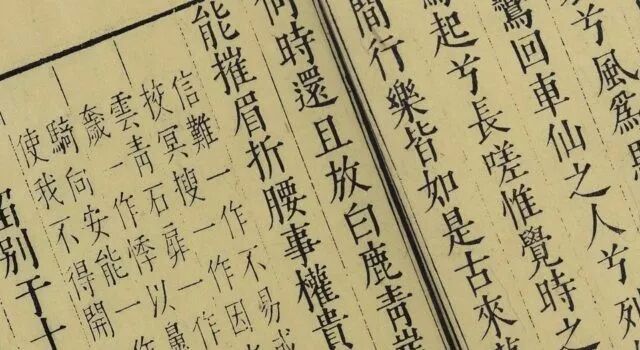 兮風爲馬
鸞回車仙之人兮列
驚起兮長嗟惟覺時之
間行樂皆如是古來萬
何時還且放白鹿青崖
能摧眉折腰事權貴
信難一作不易或
冥搜一作因
雲青石扉一
一作悸以
騎向安能一作
使我不得開
留別于十